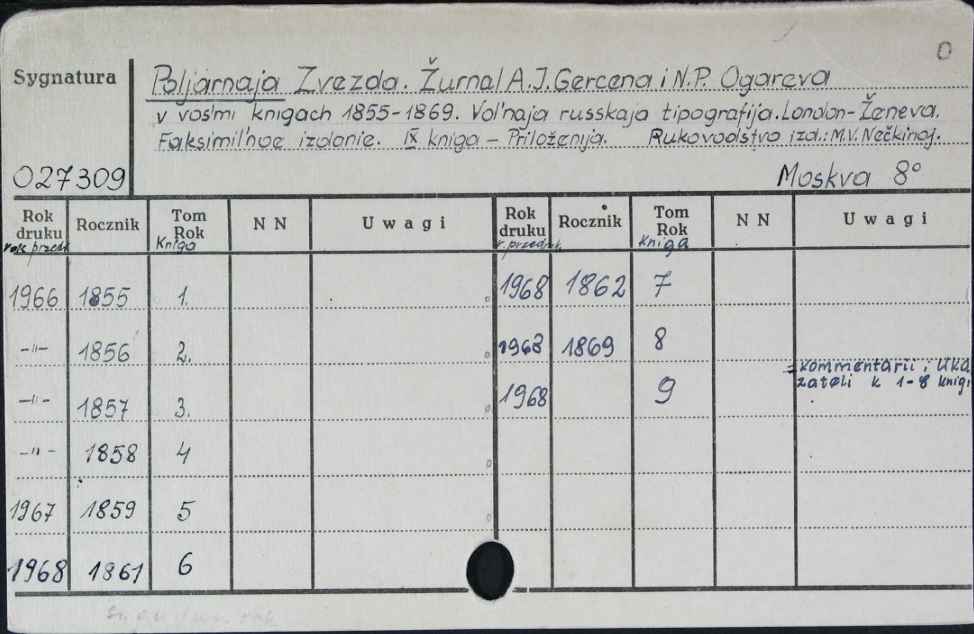 O
Sygnatura
Poljarnaja Zvezda. Žurnal A.I. Gercena i N.P. Ogareva
v vos'mi knigach 1855-1869. Vol'naja russkaja tipografija. London-Ženeva.
Faksimil'noe izdanie. IX kniga - Priloženija. Rukovodstvo izd.: M.V. Nečkinoj.
027309
Moskva 8°
Rok druku Rocznik Tom Rok N N Uwagi Rok druku Rocznik Tom Rok N N Uwagi
rok przedr. Kniga r. przedr. Kniga
1966 1855 1. 1968 1862 7
-"- 1856 2. 1968 1869 8
-"- 1857 3. 1968 9 =kommentarii i uka
zateli k 1-8 knigi
-"- 1858 4
1967 1859 5
1968 1861 6